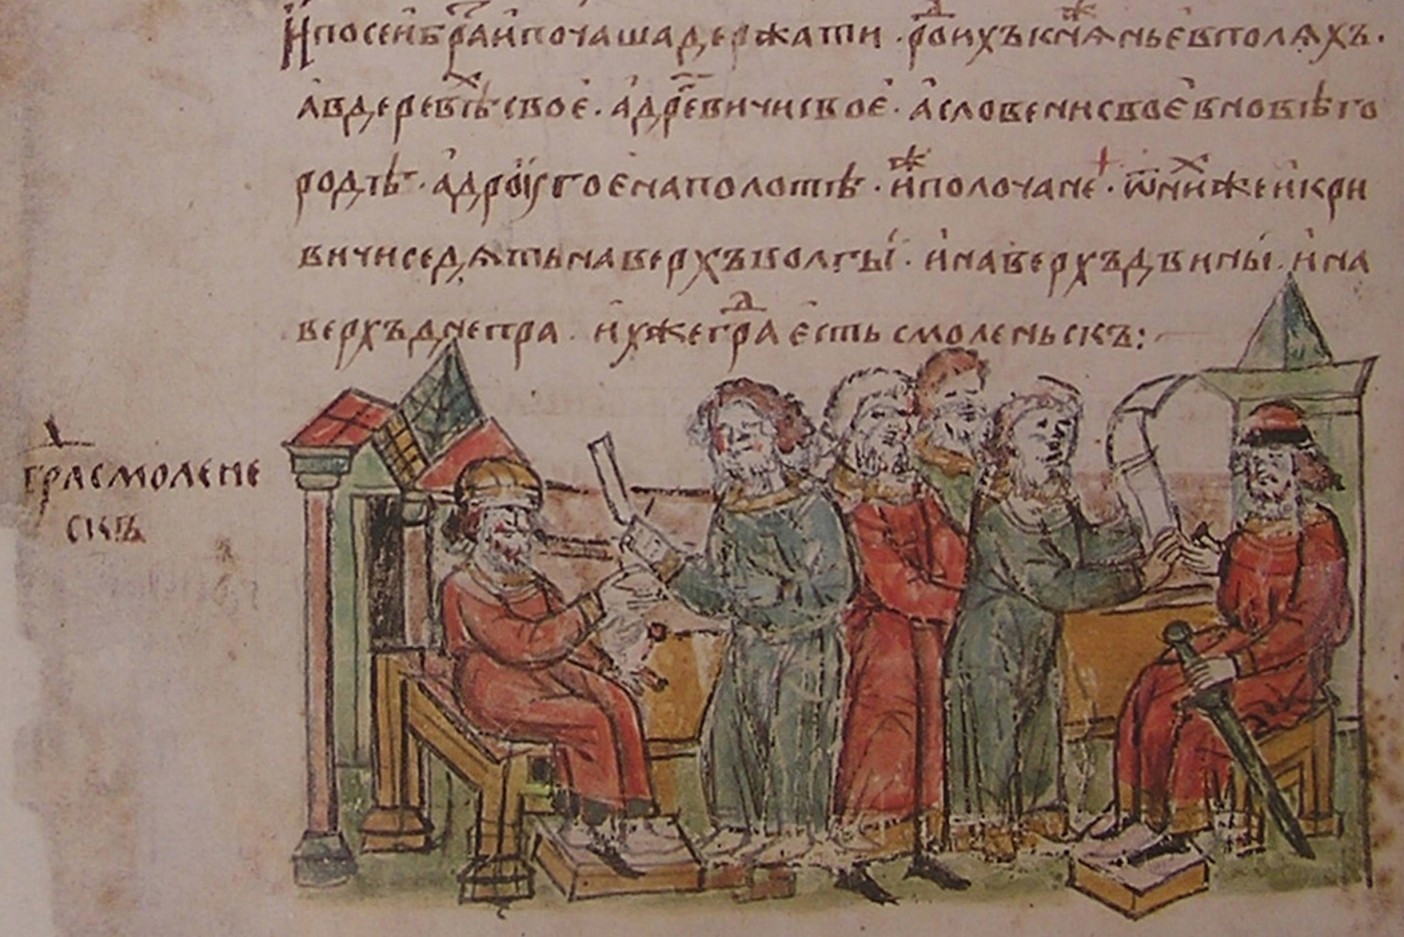 И по сеи бра҃и почаша держати родⷣ ихъ кнѧжньє в полѧхъ.
а в деревⷯѣ своє. а дре҃вичи своє. а словени своє в новѣго
родѣ. а дрꙋгоє на полотѣ. иⷤ полочане. ѿ ниⷯ же и кри
вичи седѧть на верхъ волгы. и на верхъ двины. и на
верхъ днепра. ихже граⷣ єсть смоленьскъ:
граⷣ смолене
скъ